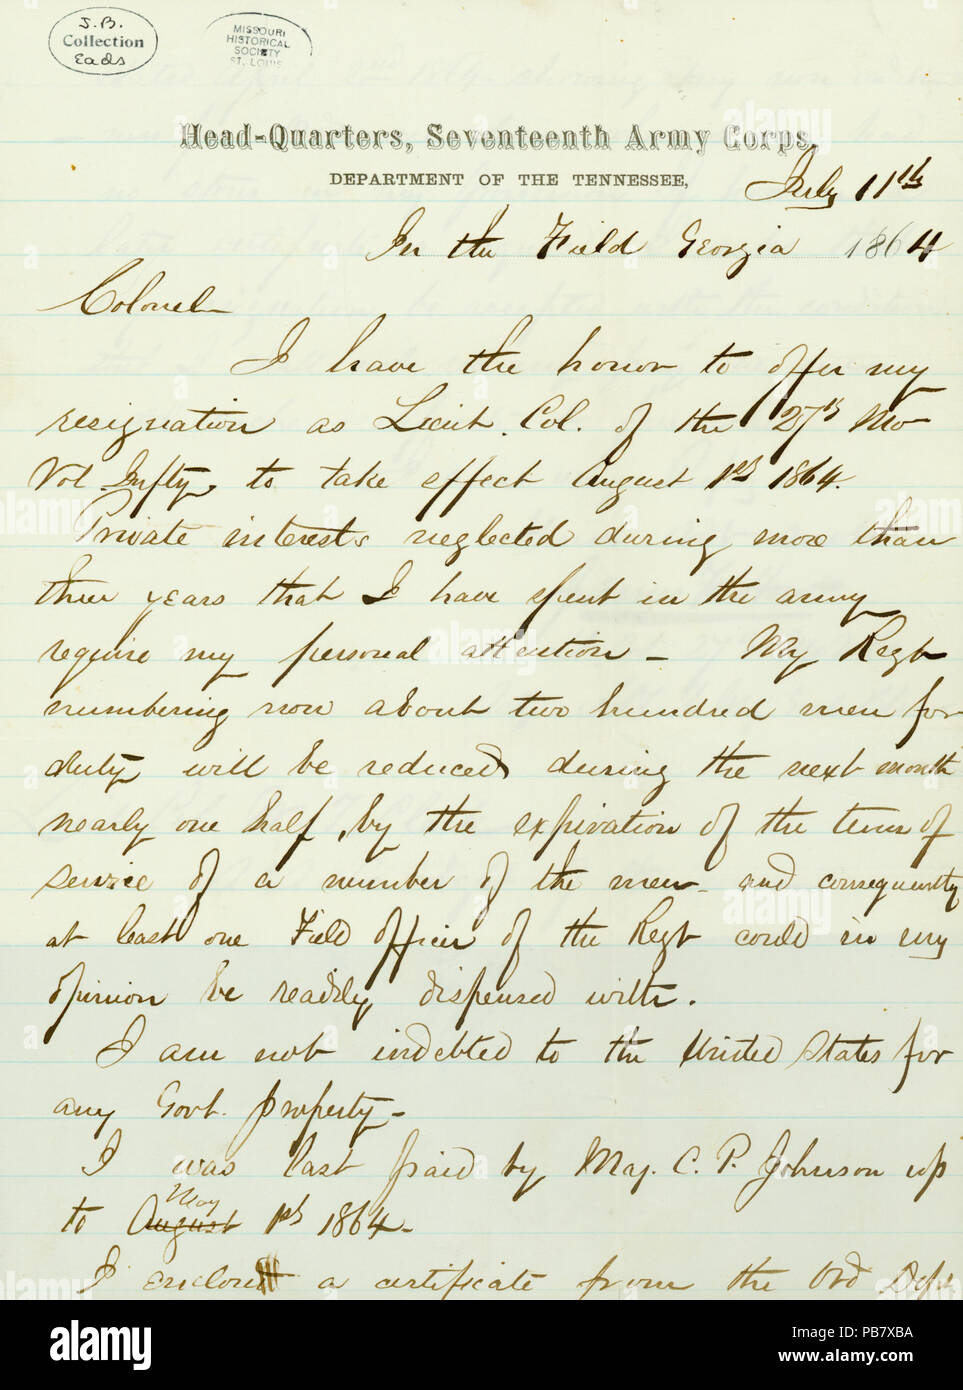 J.B.
Collection
Eads
MISSOURI
HISTORICAL
SOCIETY
ST. LOUIS
Head-Quarters, Seventeenth Army Corps,
DEPARTMENT OF THE TENNESSEE,
July 11th
In the Field Georgia 1864
Colonel
I have the honor to offer my
resignation as Lieut. Col. of the 27th Mo
Vol Infty, to take effect August 1st 1864.
Private interests neglected during more than
three years that I have spent in the army
require my personal attention - My Regt
numbering now about two hundred men for
duty will be reduced during the next month
nearly one half, by the expiration of the term of
service of a number of the men - and consequently
at least one Field officer of the Regt could in my
opinion be readily dispensed with.
I am not indebted to the United States for
any Govt. property -
I was last paid by Maj. C. P. Johnson up
to August May 1st 1864 -
I enclose a certificate from the Ord Dept
alamy
Image ID: PB7XBA
www.alamy.com